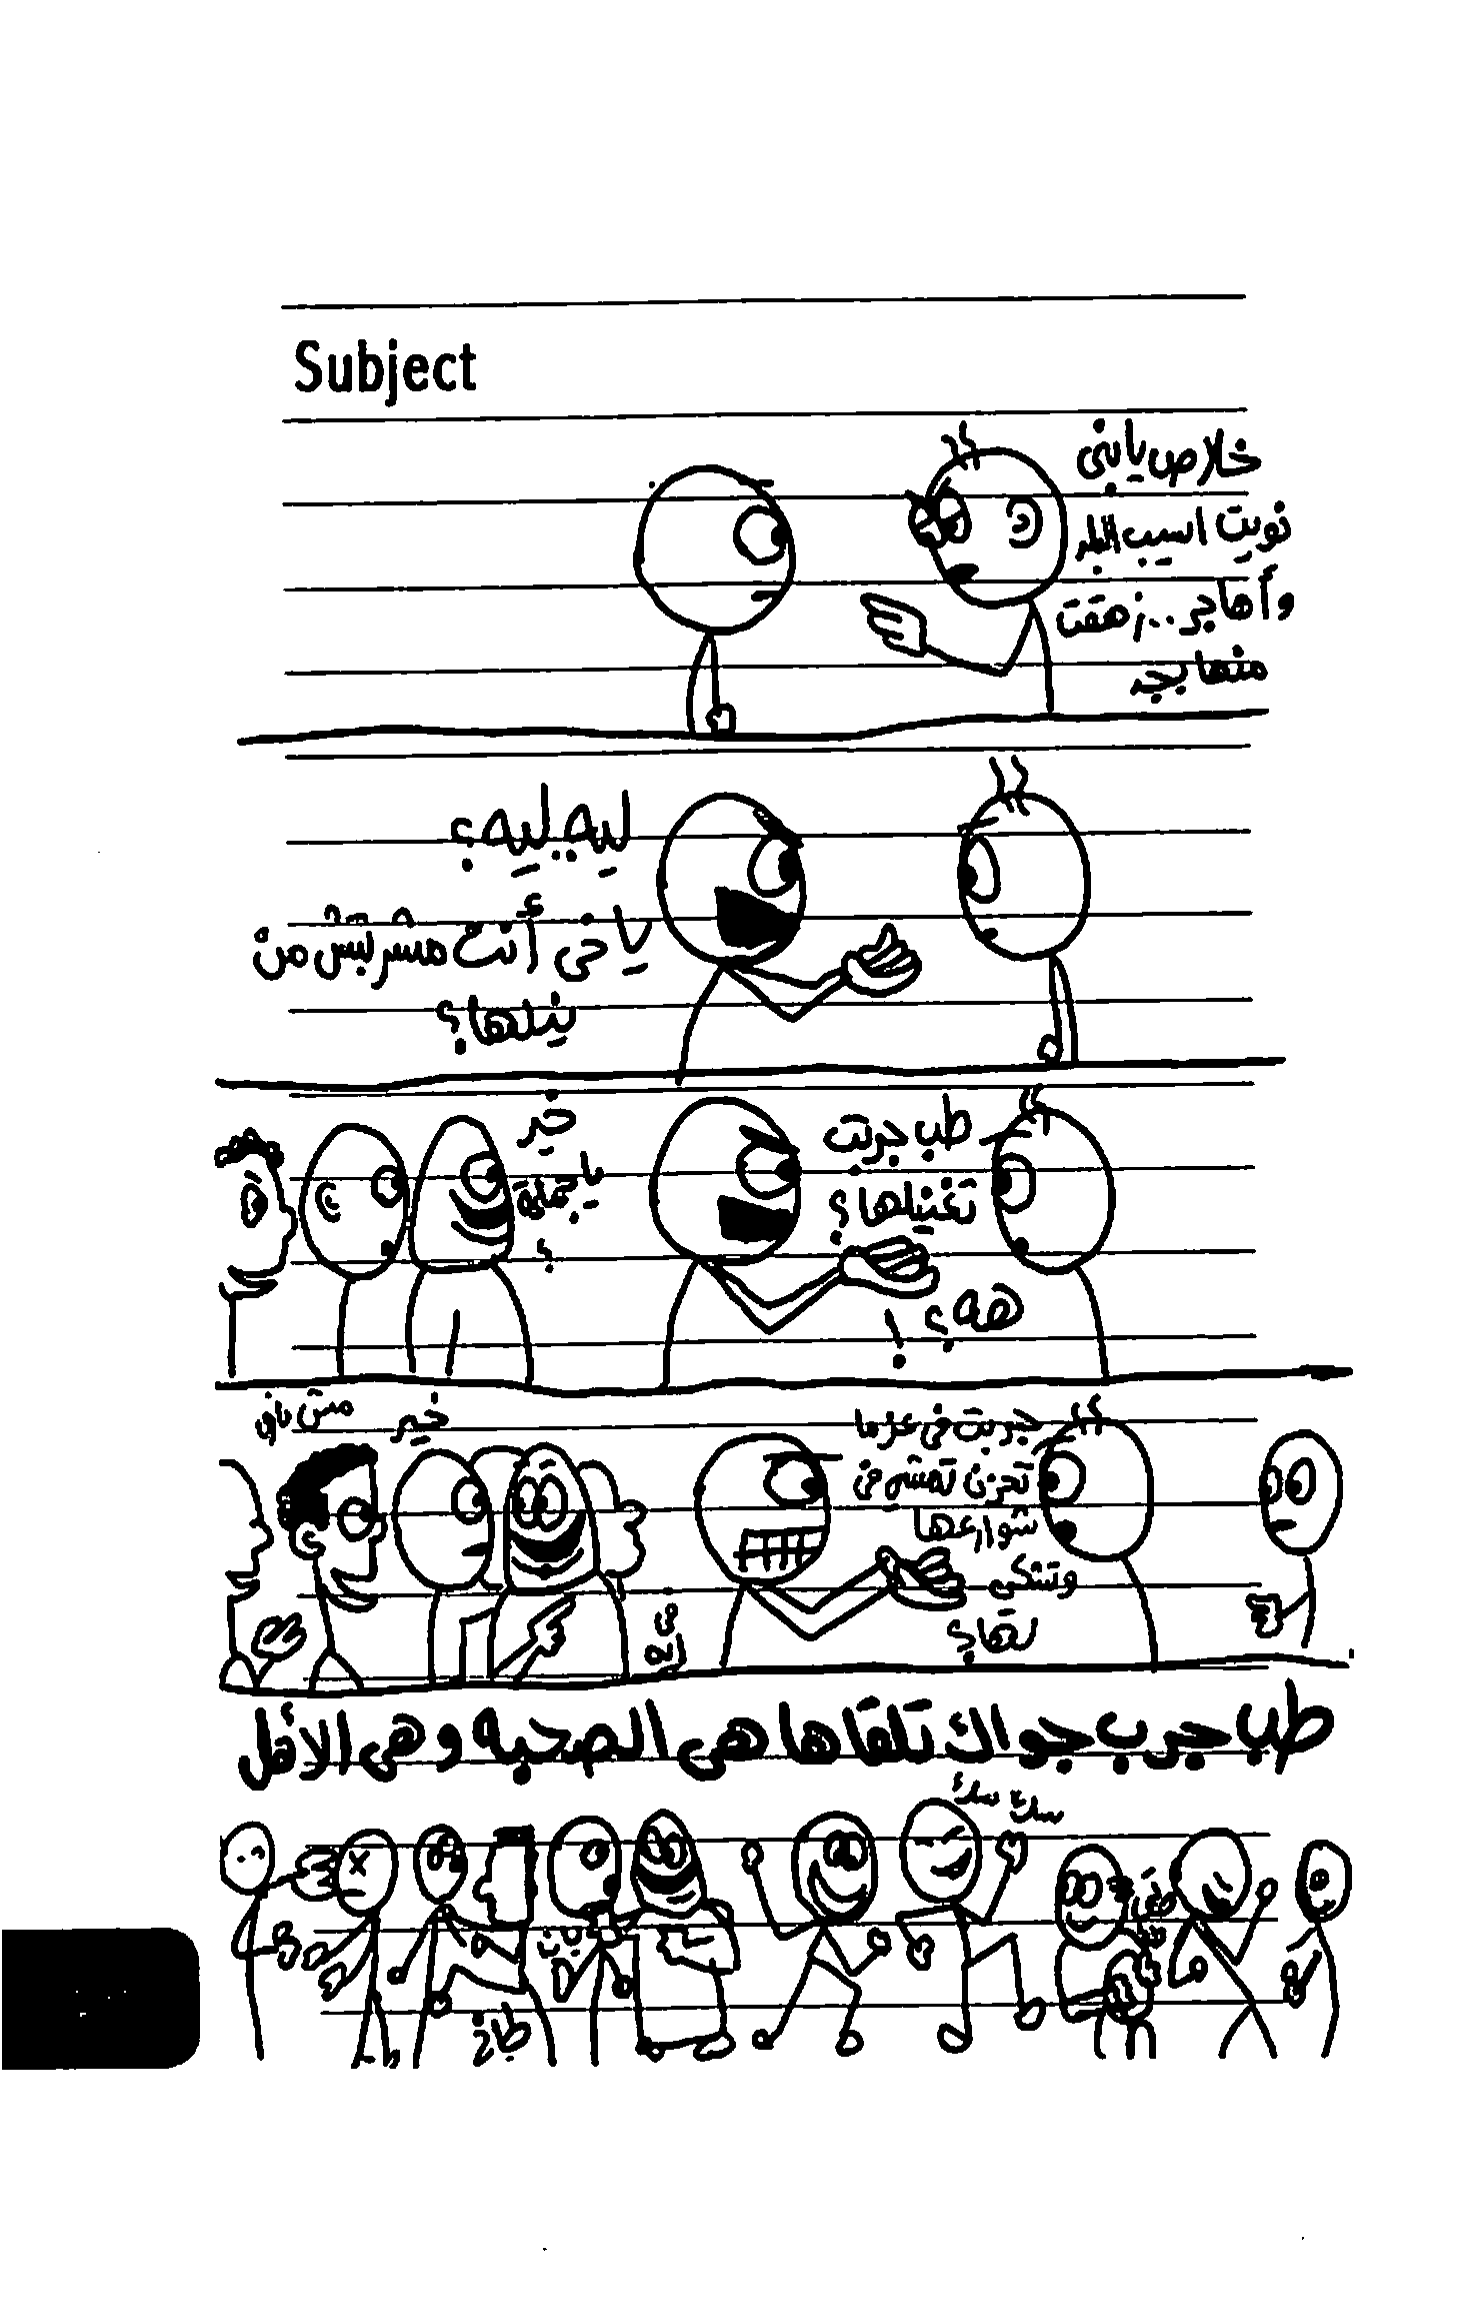 Subject
خلاص يابنى
نويت اسيب البلد
وأهاجر .. زهقت
منها بجد
ليه .. ليه ؟
يا خى أنت مشربتش من
نيلها ؟
طب جربت
تغنيلها ؟
هه ؟ !
خير
يا جماعة
؟
جربت فى عز ما
تحزن تمشى فى
شوارعها
وتشكى
لها ؟
خير
مش عارف
فى
إيه
طب جرب جواك تلقاها هى الصحبه وهى الأهل